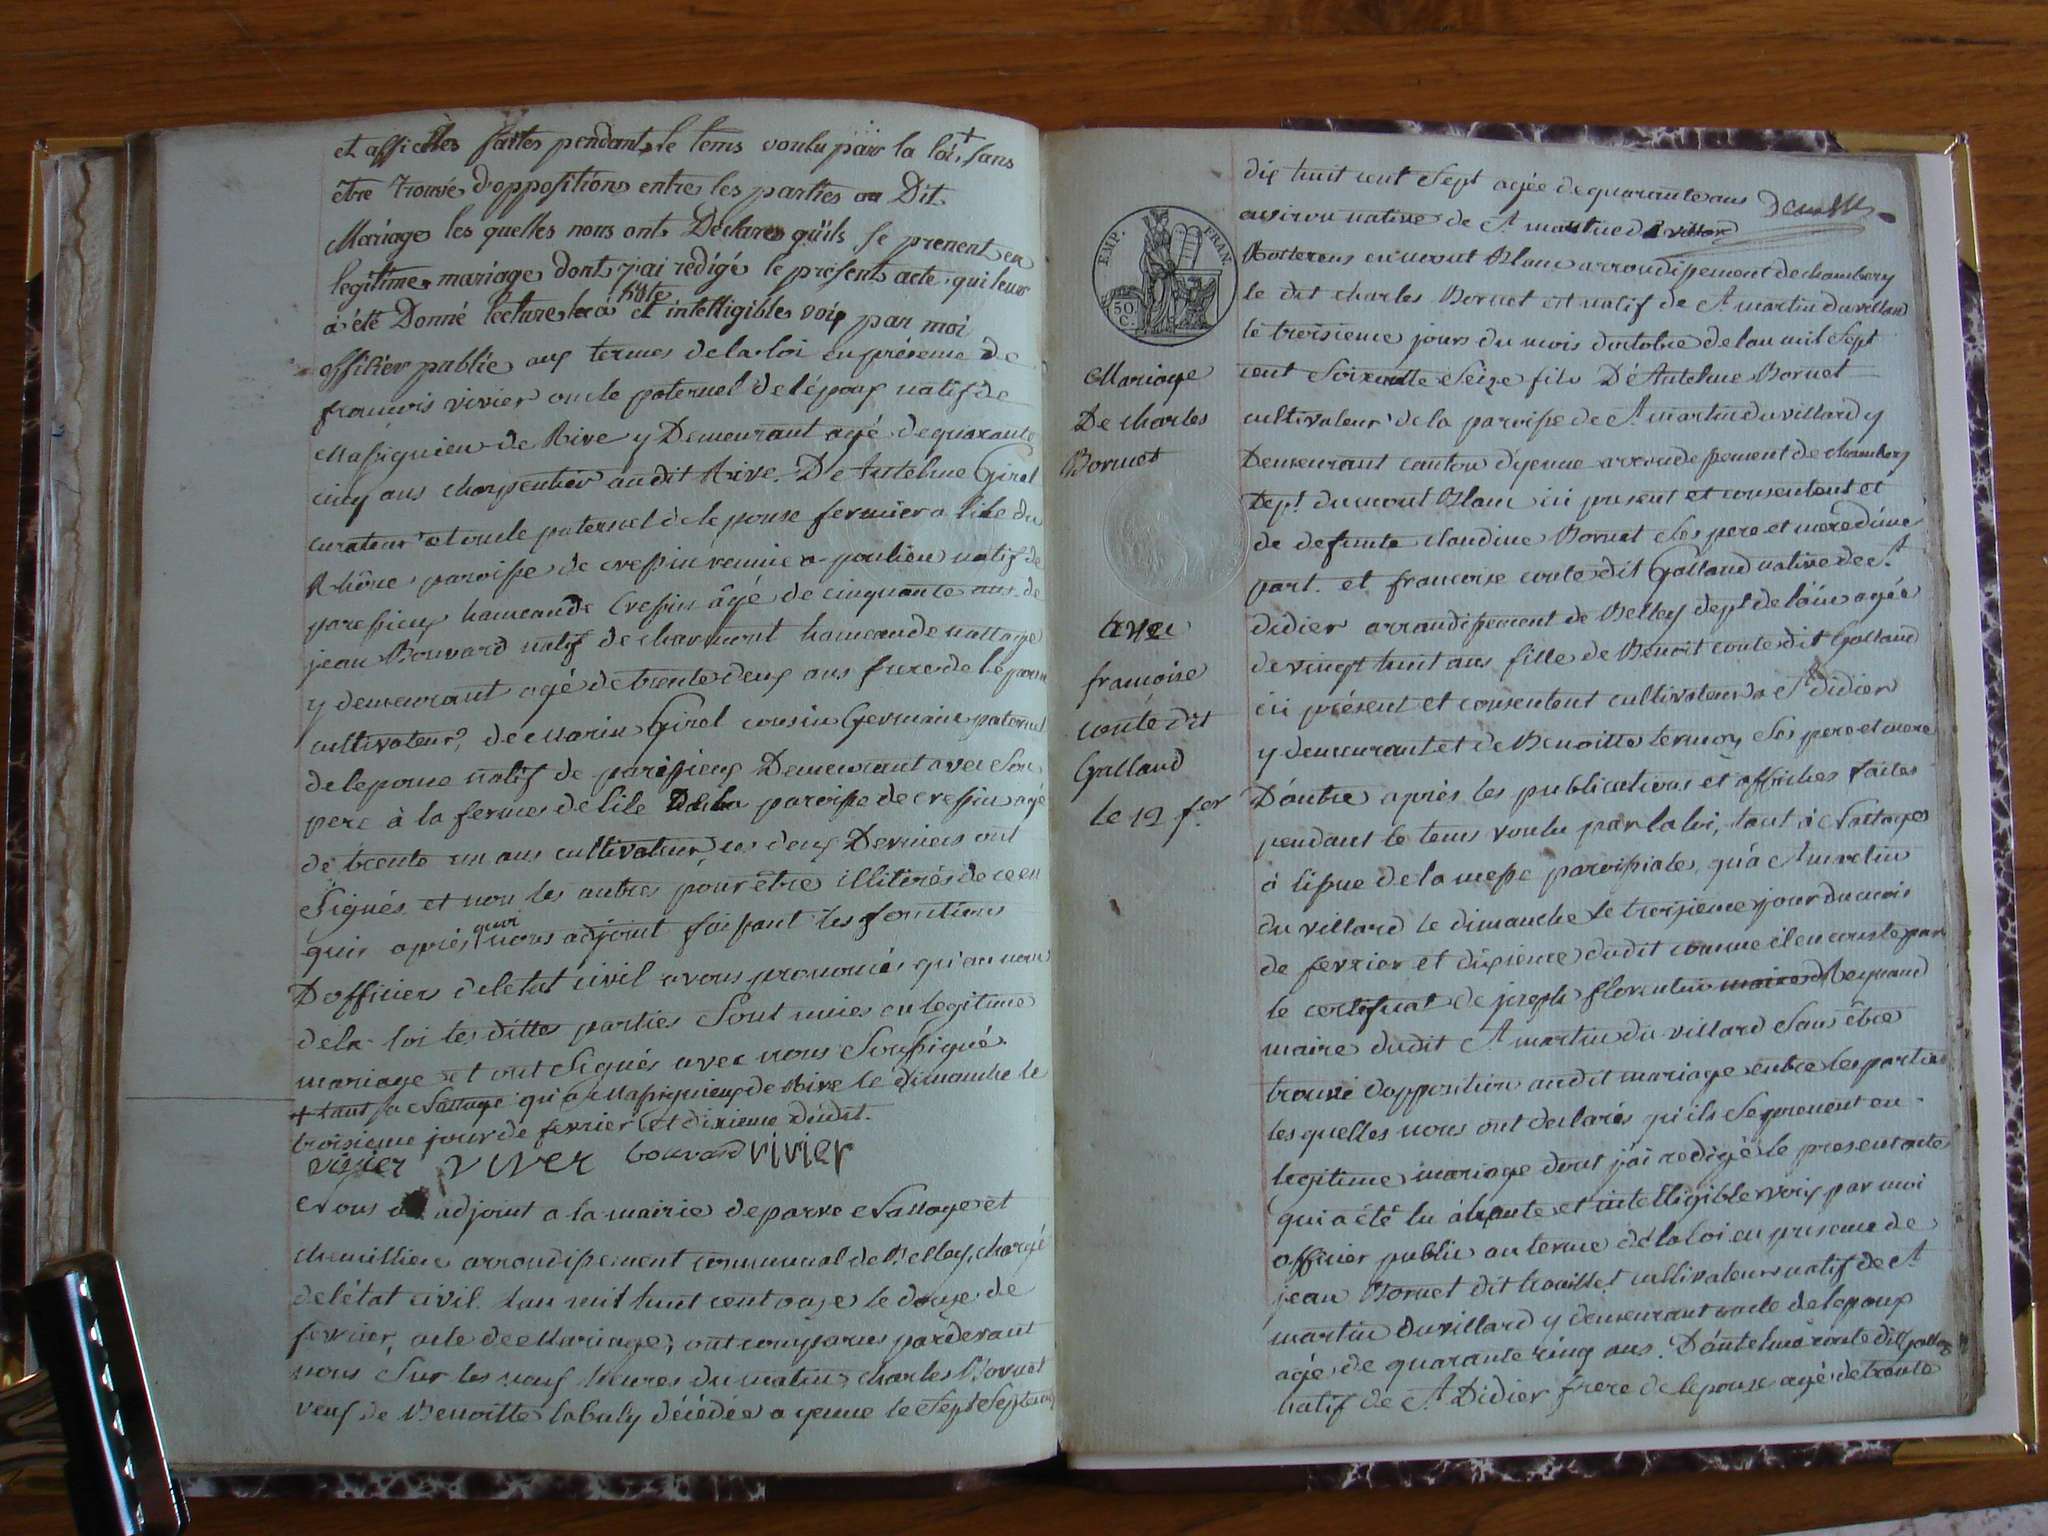 et affiches faites pendant le tems voulu par la loi + sans
être trouvé d'oppositions entre les parties au Dit
Mariage les quelles nous ont Déclarés qu'ils se prenent en
legitime mariage dont j'ai rédigé le présent acte qui leur
à été Donné lecture à haute et intelligible voix par moi
officier public aux termes de la loi en présence de
francois vivier oncle paternel de l'époux natif de
Massignieu de Rive y Demeurant agé de quarante
cinq ans charpentier audit Rive. De Antelme Girel
curateur et oncle paternel de lepouse fermier a lile du
Rhône paroisse de cressin reunie a poulieu natif de
paressieux hameau de Cressin âgé de cinquante ans. de
jean Bouvard natif de charmont hameau de nattage
y demeurant agé de trente deux ans frere de
cultivateur, de Marin Girel cousin Germain paternel
de lepouse natif de paressieux Demeurant avec son
pere à la ferme de lile De la paroisse de cressin agé
de trente un ans cultivateur, ces deux Derniers ont
signés et non les autres pour être illitérés de ce en
quis après quoi nous adjoint faisant les fonctions
D'officier de letat civil avons prononcés qu'au nom
de la loi les dittes parties sont unies en legitime
mariage et ont signés avec nous soussigné.
+ tant a Nattage qu'a Massignieux de Rive le dimanche le
troisieme jour de fevrier et dixieme dudit.
vivier viver bouvard vivier
Nous adjoint a la mairie de parve Nattage et
chemilliene arrondissement communal de Belley, chargé
de l'état civil. lan mil huit cent onze le douze de
fevrier, acte de Mariage, ont comparus pardevant
nous sur les neuf heures du matin charles Bornet
veuf de Benoitte labaly décédée a yenne le sept septembre
EMP. FRAN.
50 C.
Mariage
De charles
Bornet
avec
francoise
conte dit
Galland
le 12 fer
dix huit cent sept agée de quarante ans
environ native de St maurice de
Rotterens en mont Blanc arrondissement de chambery
le dit charles Bornet est natif de St martin du villard
le troisieme jours du mois doctobre de lan mil sept
cent soixante seize fils D'Antelme Bornet
cultivateur de la paroisse de St martin du villard y
Demeurant canton d'yenne arrondissement de chambery
Dept du mont Blanc ici present et consentent et
de defunte claudine Bornet ses pere et mere d'une
part. et francoise conte dit Galland native de St
didier arrondissement de Belley dept de l'ain agée
de vingt huit ans fille de Benoit conte dit Galland
ici présent et consentent cultivateur a St didier
y demeurant et de Benoitte ses pere et mere
D'autre après les publications et affiches faites
pendant le tems voulu par la loi, tant à Nattages
à lissue de la messe paroissiale, qu'a St martin
du villard le dimanche le troisieme jour du mois
de fevrier et dixieme dudit comme il en conste par
le certificat de joseph florentin maire Reynaud
maire dudit St martin du villard sans être
trouvé d'opposition audit mariage entre les parties
les quelles nous ont declarés qu'ils se prenent en
legitime mariage dont j'ai redigé le present acte
qui a été lu à haute et intelligible voix par moi
officier public au terme de la loi en presence de
jean Bornet dit cultivateur natif de St
martin du villard y demeurant oncle de lepoux
agé de quarante cinq ans. D'antelme conte dit galland
natif de St Didier frere de lepouse agé de trente